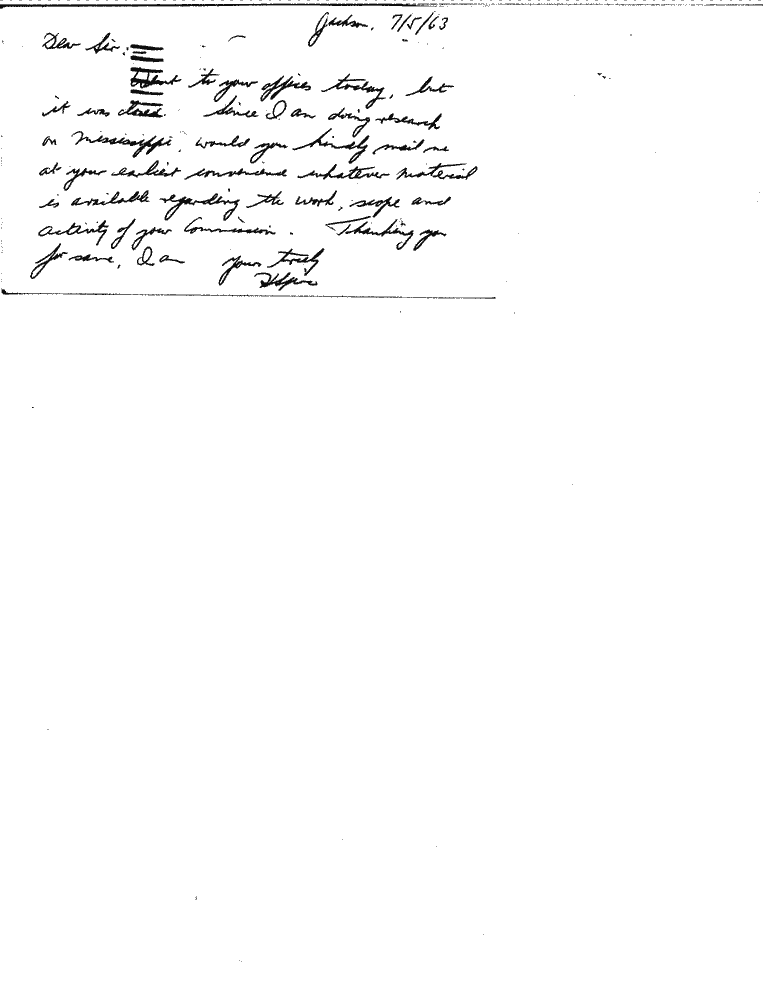 Jackson, 7/5/63
Dear Sir:
Went to your offices today, but
it was closed. Since I am doing research
on Mississippi, would you kindly mail me
at your earliest convenience whatever material
is available regarding the work, scope and
activity of your Commission. Thanking you
for same, I am yours truly